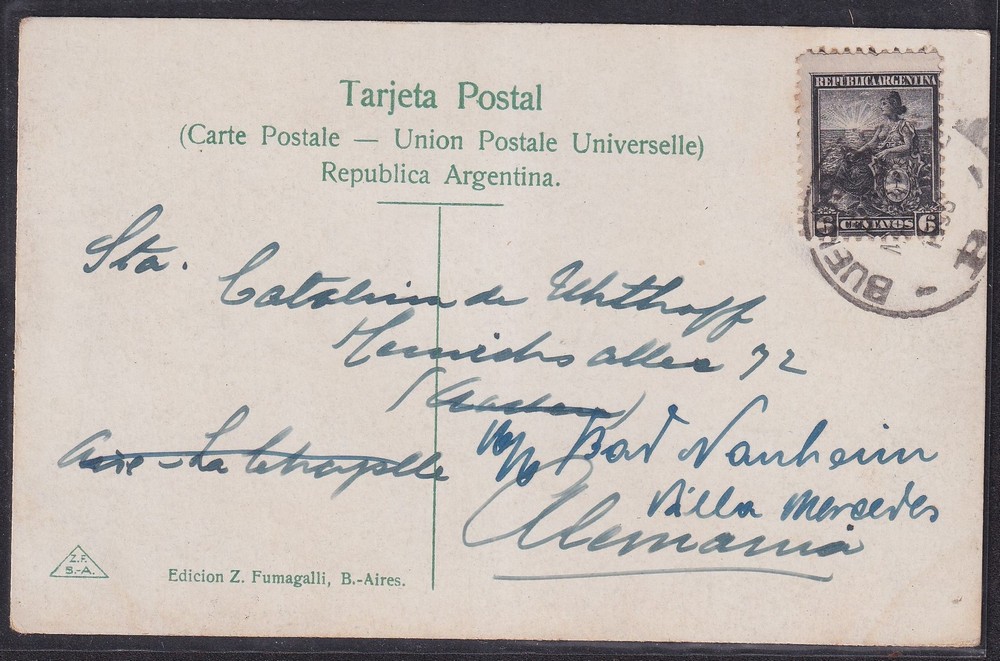 Tarjeta Postal
(Carte Postale — Union Postale Universelle)
Republica Argentina.
REPUBLICA ARGENTINA
6 CENTAVOS 6
BUE
Sta.
Catalina de Uhthoff
allee 72
(Aachen)
Aixe-La Chapelle
Bad Nauheim
Villa Mercedes
Alemania
Z.F.
B.-A.
Edicion Z. Fumagalli, B.-Aires.